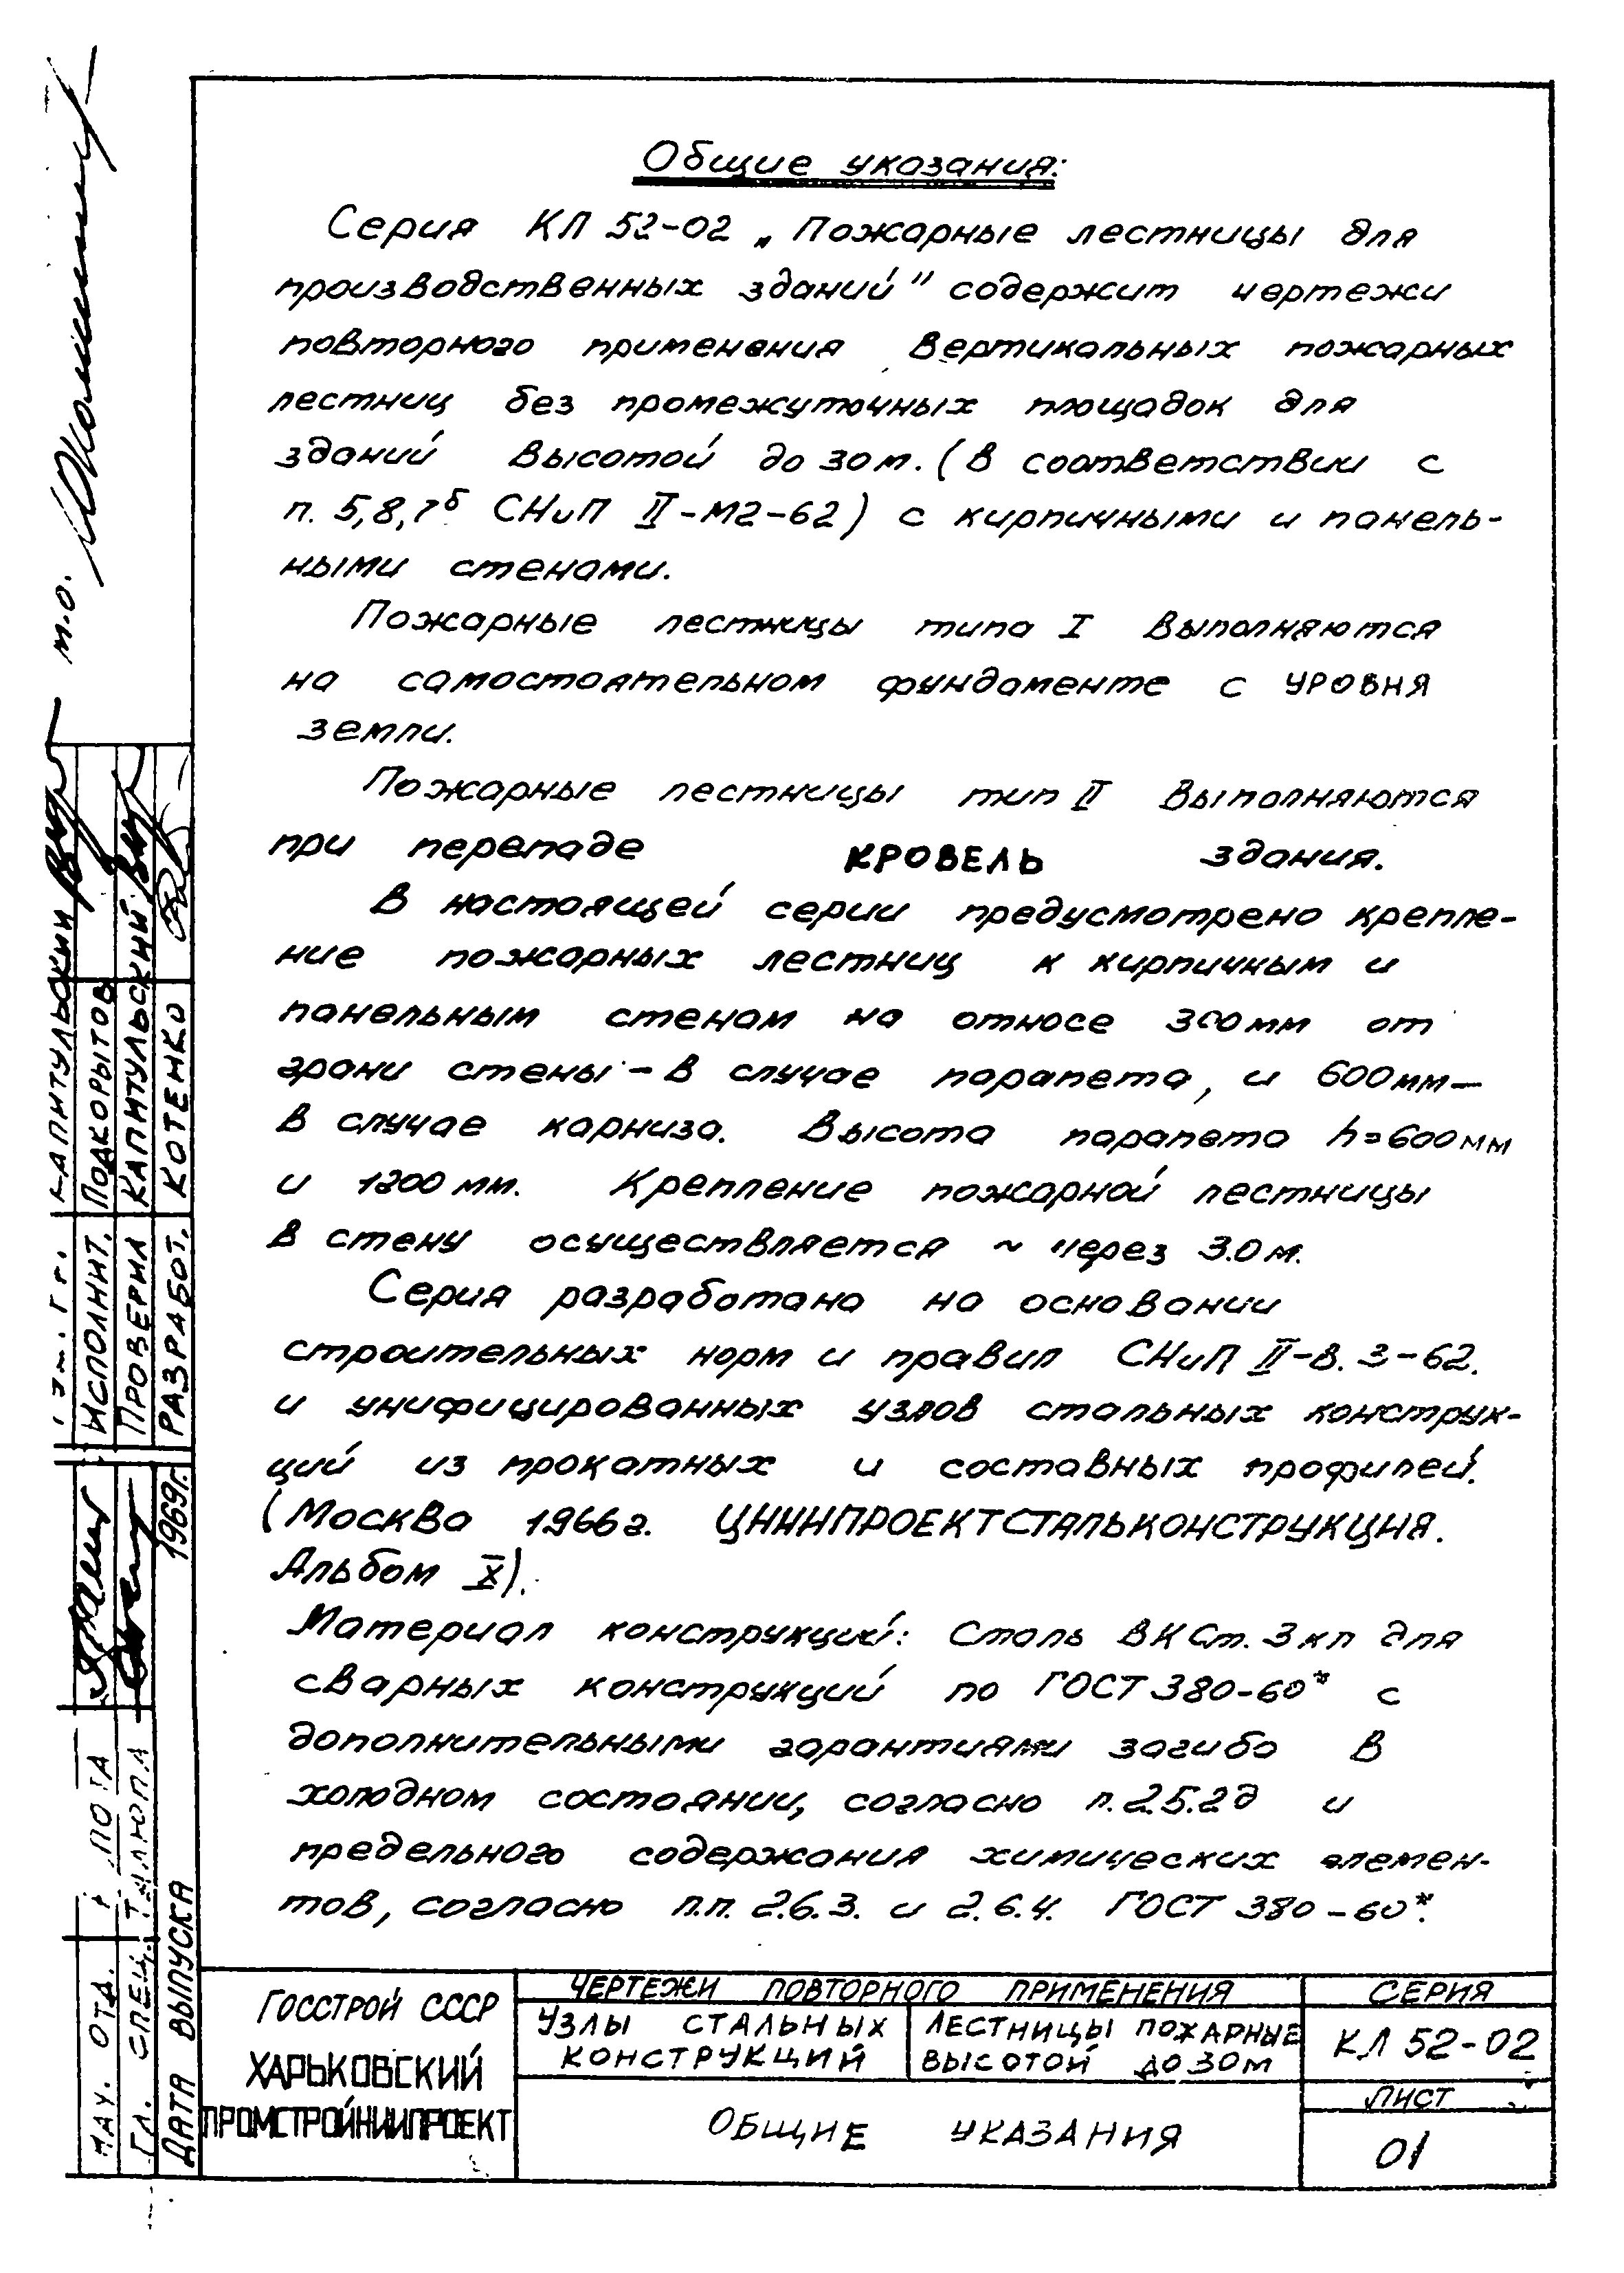 Общие указания:
Серия КЛ 52-02 „Пожарные лестницы для
производственных зданий" содержит чертежи
повторного применения вертикальных пожарных
лестниц без промежуточных площадок для
зданий высотой до 30 м. (в соответствии с
п. 5,8, СНиП II-М2-62) с кирпичными и панель-
ными стенами.
Пожарные лестницы типа I выполняются
на самостоятельном фундаменте с уровня
земли.
Пожарные лестницы тип II выполняются
при перепаде КРОВЕЛЬ здания.
В настоящей серии предусмотрено крепле-
ние пожарных лестниц к кирпичным и
панельным стенам на относе 300 мм от
грани стены - в случае парапета, и 600 мм —
в случае карниза. Высота парапета h=600 мм
и 1200 мм. Крепление пожарной лестницы
в стену осуществляется ~ через 3.0 м.
Серия разработана на основании
строительных норм и правил СНиП II-В. 3-62.
и унифицированных узлов стальных конструк-
ций из прокатных и составных профилей.
(Москва 1966г. ЦНИИПРОЕКТСТАЛЬКОНСТРУКЦИЯ.
Альбом X).
Материал конструкций: Сталь ВКСт. 3 кп для
сварных конструкций по ГОСТ 380-60* с
дополнительными гарантиями загиба в
холодном состоянии, согласно п. 2.5.2д и
предельного содержания химических элемен-
тов, согласно п.п. 2.6.3. и 2.6.4. ГОСТ 380-60*.
ГОССТРОЙ СССР
ХАРЬКОВСКИЙ
ПРОМСТРОЙНИИПРОЕКТ
ЧЕРТЕЖИ ПОВТОРНОГО ПРИМЕНЕНИЯ
УЗЛЫ СТАЛЬНЫХ
КОНСТРУКЦИЙ
ЛЕСТНИЦЫ ПОЖАРНЫЕ
ВЫСОТОЙ ДО 30М
ОБЩИЕ УКАЗАНИЯ
СЕРИЯ
КЛ 52-02
ЛИСТ
01
т.о.
КАПИТУЛЬСКИЙ
ИСПОЛНИТ. ПОДКОРЫТОВ
ПРОВЕРИЛ КАПИТУЛЬСКИЙ
РАЗРАБОТ. КОТЕНКО
НАЧ. ОТД.
ГЛ. СПЕЦ.
ДАТА ВЫПУСКА 1969г.